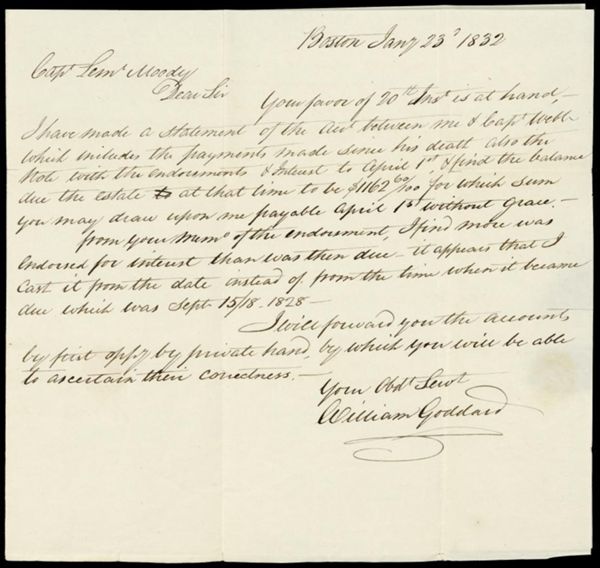 Boston Jany 23d 1832
Capt. Leml Moody
Dear Sir
Your favor of 20th Inst is at hand, —
I have made a statement of the Acct between me & Capt Webb
which includes the payments made since his death also the
Note with the endorsments & Interest to April 1st, & find the balance
due the estate at that time to be $1162 60/100 for which sum
you may draw upon me payable April 1st without Grace. —
from your Memo of the endorsment, I find more was
endorsed for interest than was then due — it appears that I
cast it from the date instead of from the time when it became
due which was Sept 15/18 1828 —
I will forward you the accounts
by first oppy by private hand, by which you will be able
to ascertain their corectness. —
Your Obdt Servt
William Goddard